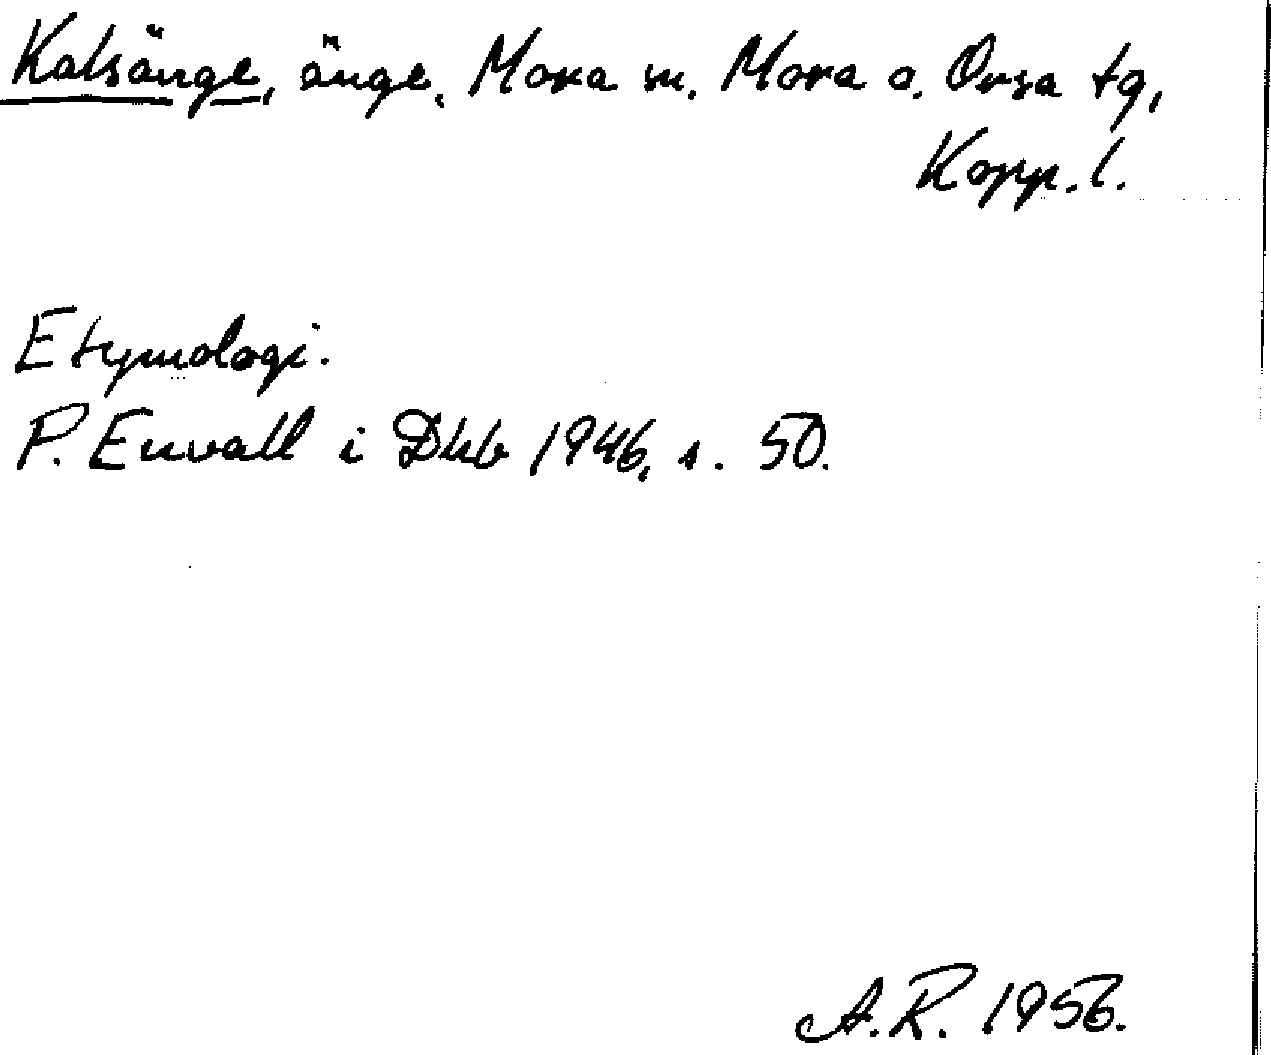 Katsänge, änge, Mora sn. Mora o. Orsa tg,
Kopp. l.
Etymologi.
P. Envall i Dhb 1946, s. 50.
A.R. 1956.